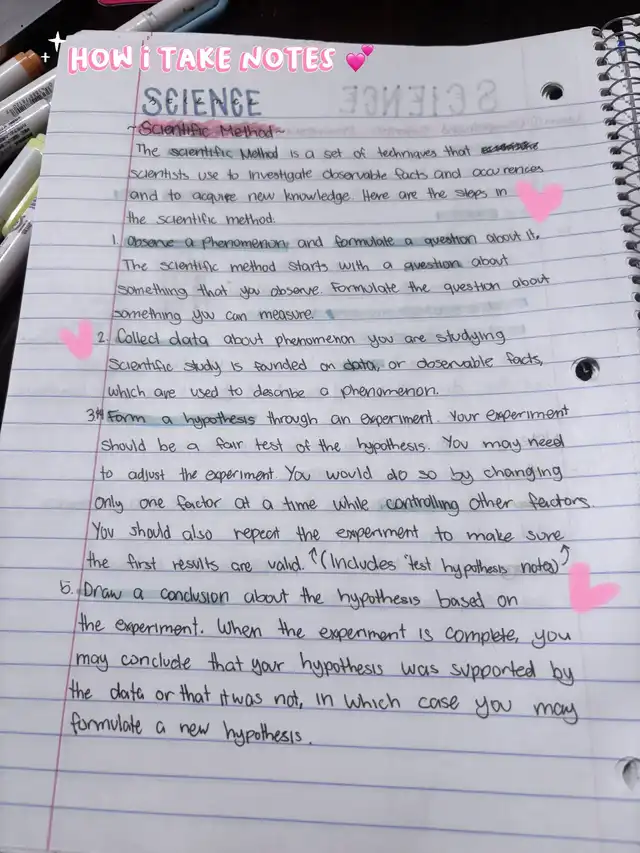 HOW i TAKE NOTES
SCIENCE
~Scientific Method~
The scientific Method is a set of techniques that
scientists use to investigate observable facts and accurences
and to acquire new knowledge. Here are the steps in
the scientific method.
1. Observe a phenomenon and formulate a question about it.
The scientific method starts with a question about
something that you observe. Formulate the question about
something you can measure.
2. Collect data about phenomenon you are studying
scientific study is founded on data, or observable facts,
which are used to describe a phenomenon.
3/4 Form a hypothesis through an experiment. Your experiment
should be a fair test of the hypothesis. You may need
to adjust the experiment. You would do so by changing
only one factor at a time while controlling other factors.
You should also repeat the experiment to make sure
the first results are valid. ↑(Includes "test hypothesis notes)↑
5. Draw a conclusion about the hypothesis based on
the experiment. When the experiment is complete, you
may conclude that your hypothesis was supported by
the data or that it was not, in which case you may
formulate a new hypothesis.